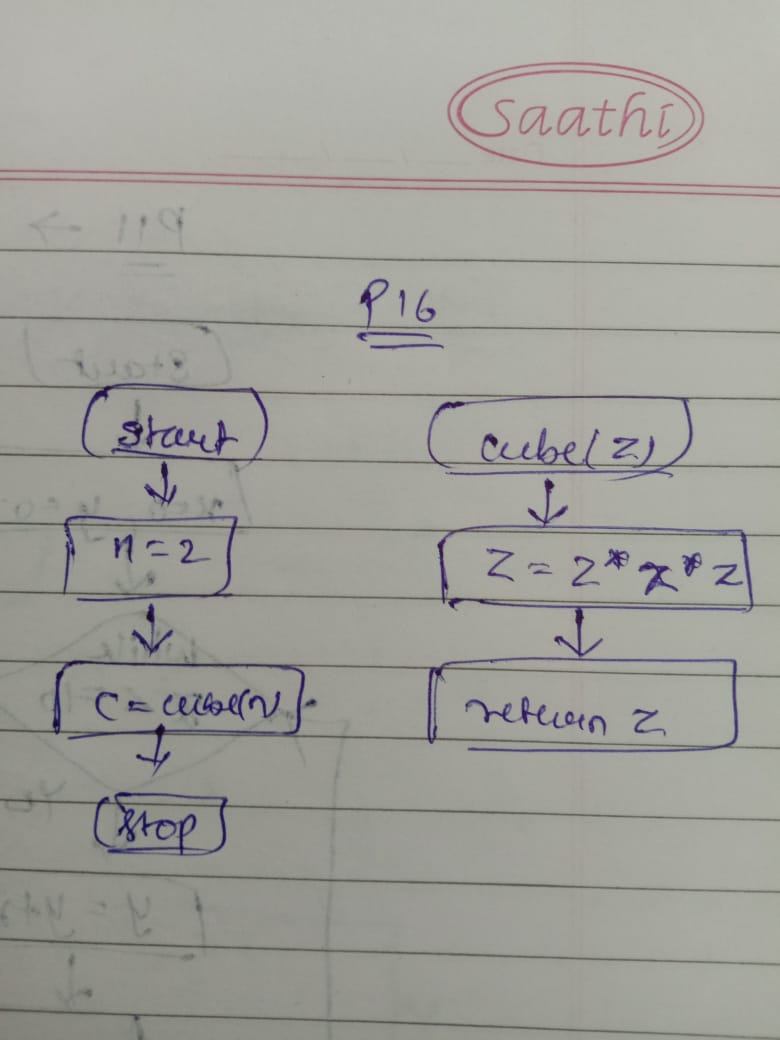 Saathi
P16
start
n = 2
c = cube(n)
stop
cube(z)
z = z * z * z
return z